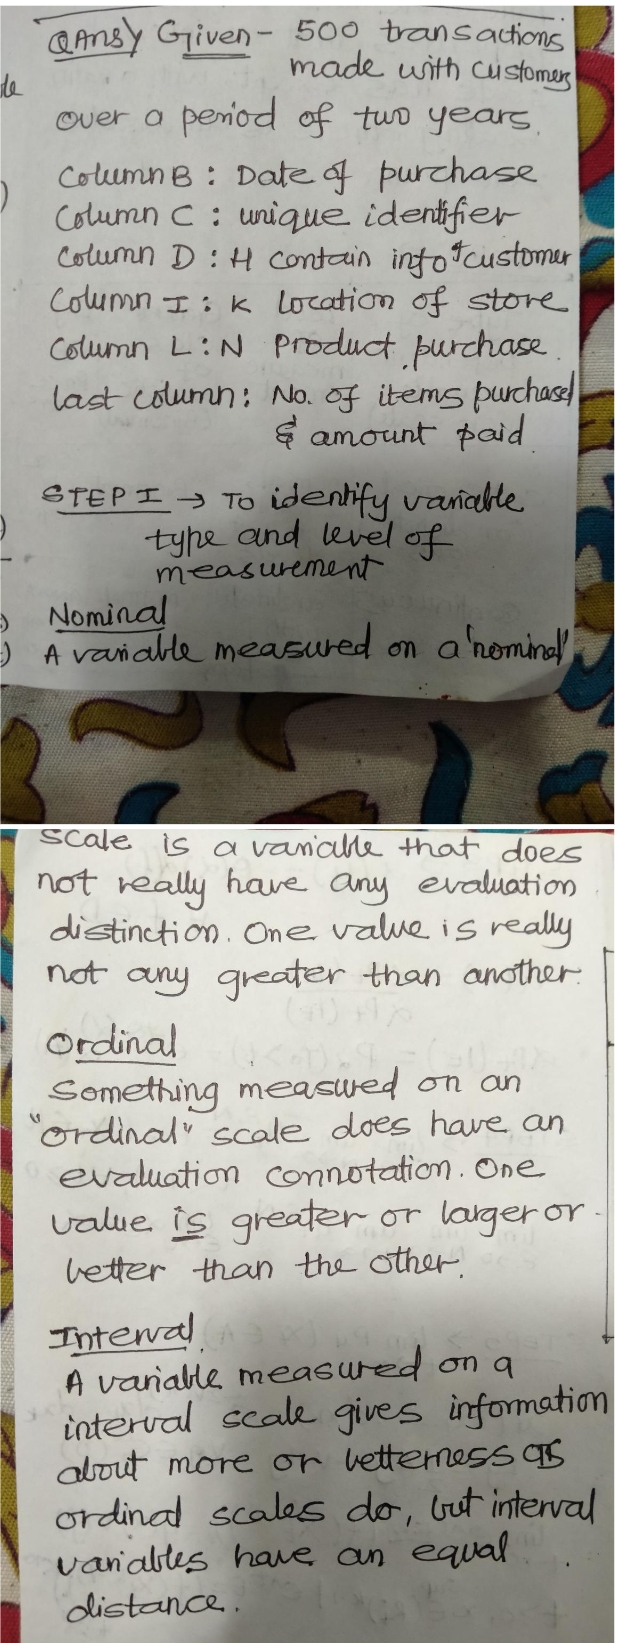 QANSY Given - 500 transactions
made with customers
over a period of two years.
Column B : Date of purchase
Column C : unique identifier
Column D : H contain info of customer
Column I : K Location of store
Column L : N Product purchase.
last column : No. of items purchased
& amount paid
STEP I → To identify variable
type and level of
measurement
Nominal
A variable measured on a 'nominal'
scale is a variable that does
not really have any evaluation
distinction. One value is really
not any greater than another.
Ordinal
Something measured on an
"ordinal" scale does have an
evaluation connotation. One
value is greater or larger or
better than the other.
Interval
A variable measured on a
interval scale gives information
about more or betterness as
ordinal scales do, but interval
variables have an equal
distance.